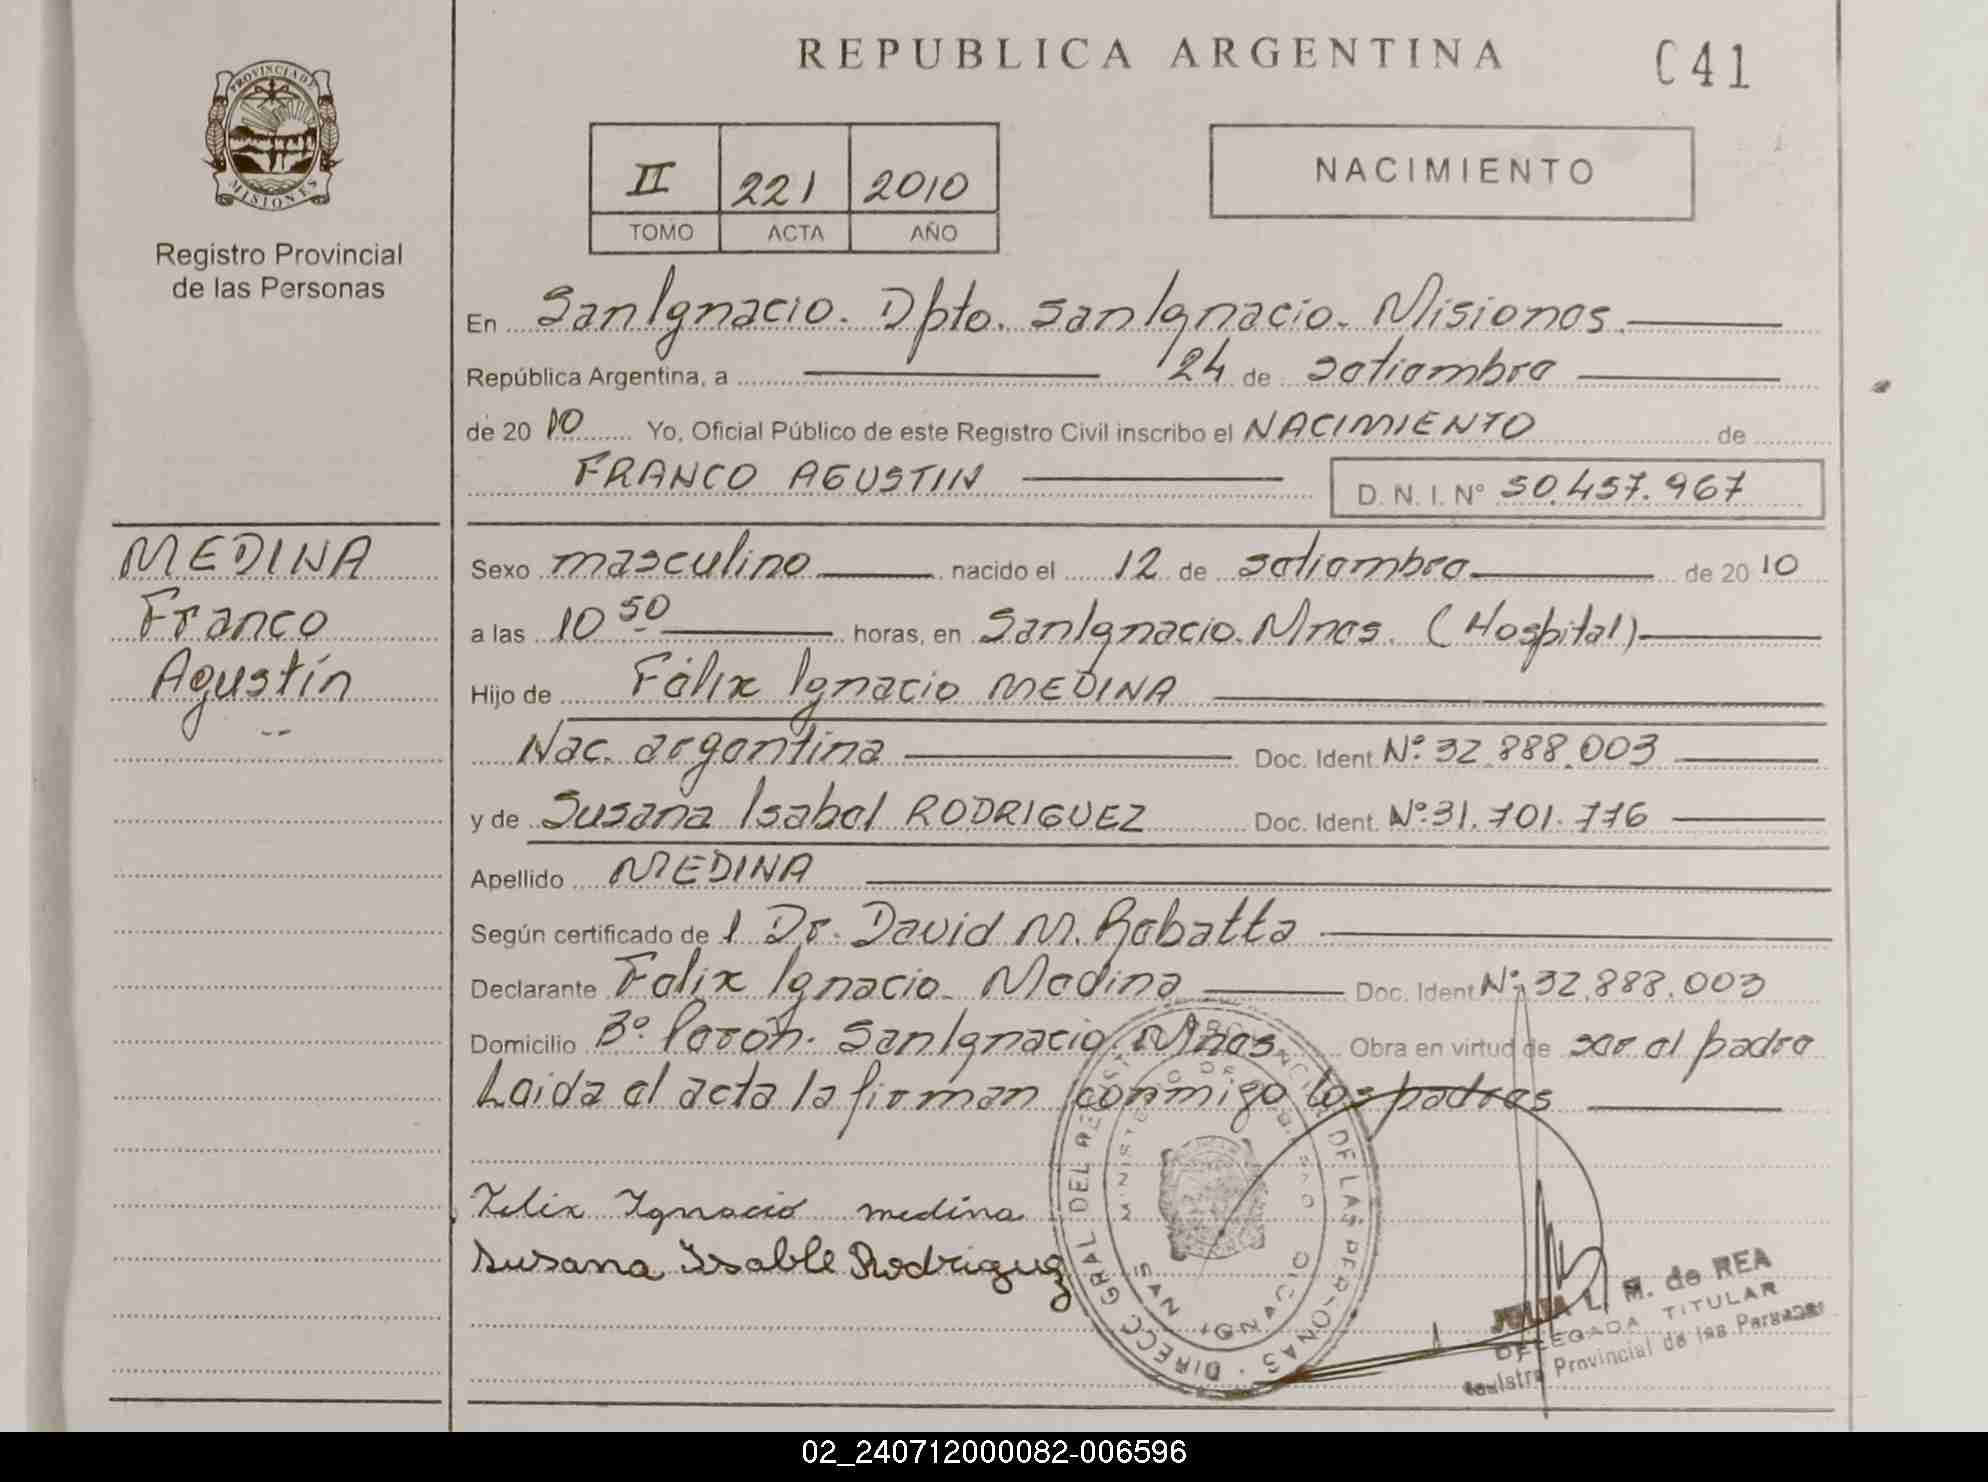 REPUBLICA ARGENTINA
C41
PROVINCIA DE
MISIONES
Registro Provincial
de las Personas
II 221 2010
TOMO ACTA AÑO
NACIMIENTO
En San Ignacio. Dpto. San Ignacio. Misiones.
República Argentina, a 24 de setiembre
de 2010 Yo, Oficial Público de este Registro Civil inscribo el NACIMIENTO de
FRANCO AGUSTIN D. N. I. Nº 50.457.967
MEDINA
Franco
Agustín
Sexo masculino nacido el 12 de setiembre de 2010
a las 10 50 horas, en San Ignacio. Mnes. (Hospital)
Hijo de Félix Ignacio MEDINA
Nac. argentina Doc. Ident. Nº 32.888.003
y de Susana Isabel RODRIGUEZ Doc. Ident. Nº 31.701.776
Apellido MEDINA
Según certificado de l Dr. David M. Robatta
Declarante Felix Ignacio Medina Doc. Ident Nº 32.888.003
Domicilio Bº Perón. San Ignacio Mnes. Obra en virtud de ser el padre
Leida el acta la firman conmigo los padres
Felix Ignacio medina
Susana Isable Rodriguez
DIRECC GRAL DEL REGISTRO PROVINCIAL DE LAS PERSONAS
SAN IGNACIO
JULIA L. M. de REA
DELEGADA TITULAR
Registro Provincial de las Personas
02_240712000082-006596